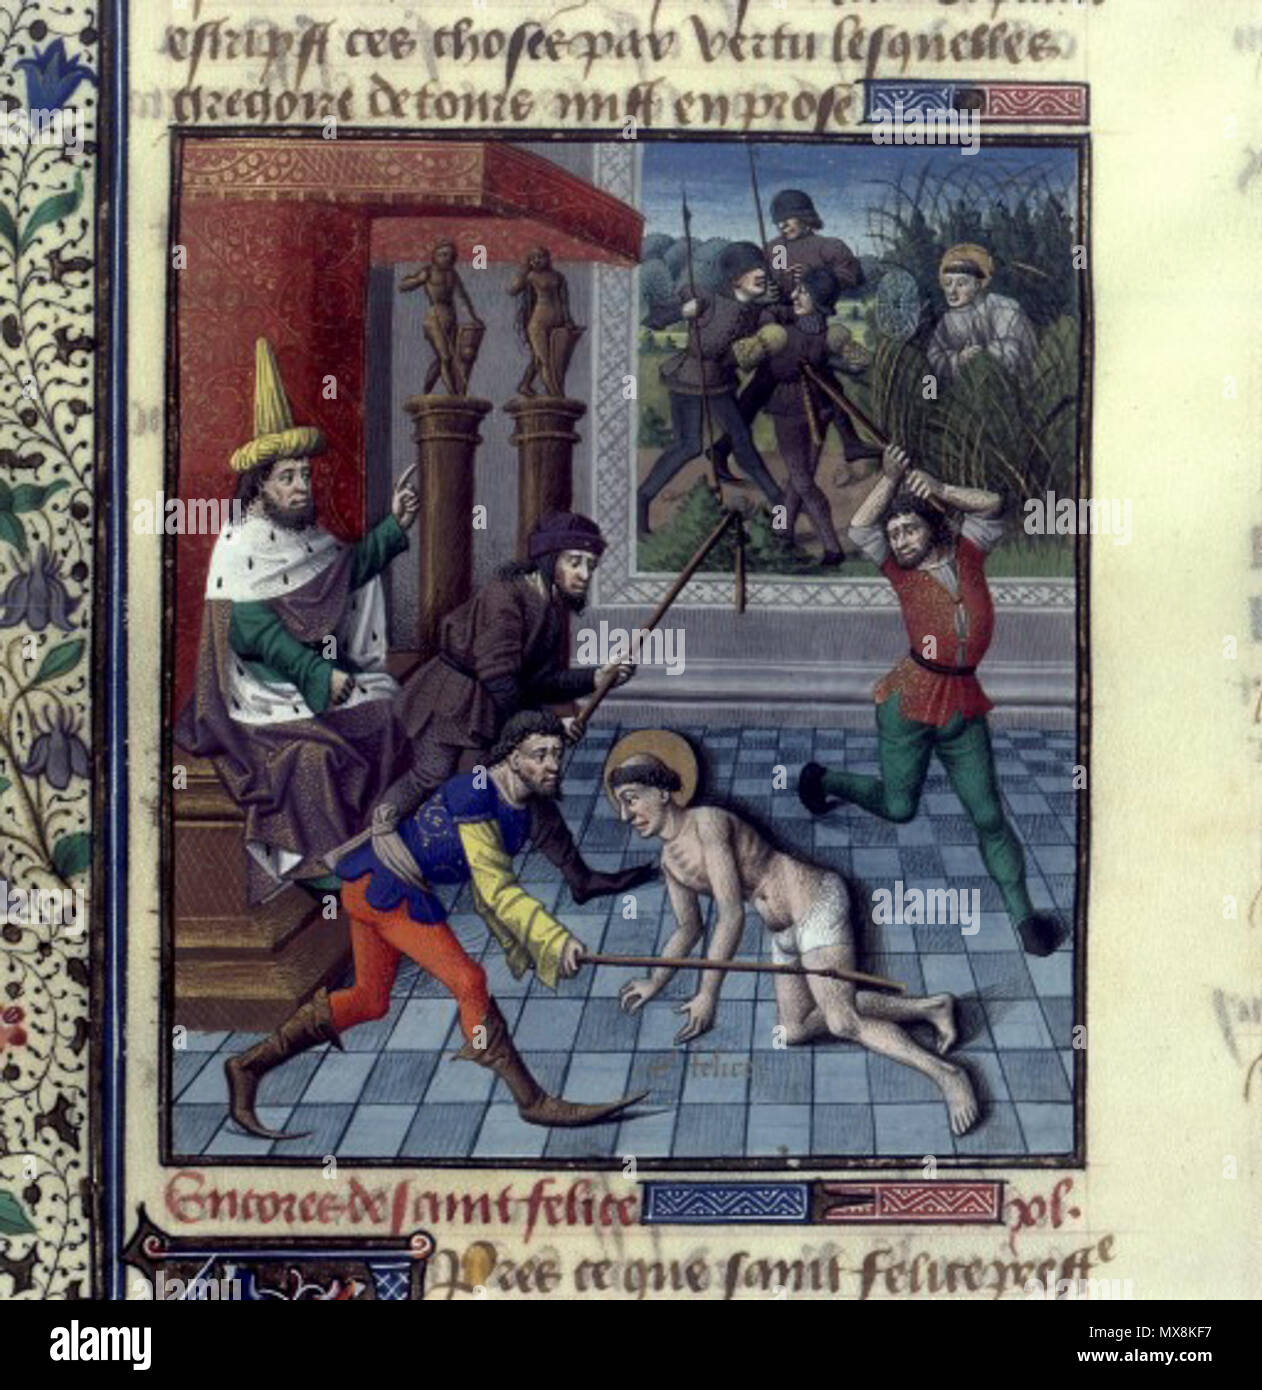 estripst ces choses par vertu lesquelles
gregoire de tours mist en prose
felice
Encores de saint felice xl.
Pres ce que saint felice prestre
alamy
Image ID: MX8KF7
www.alamy.com